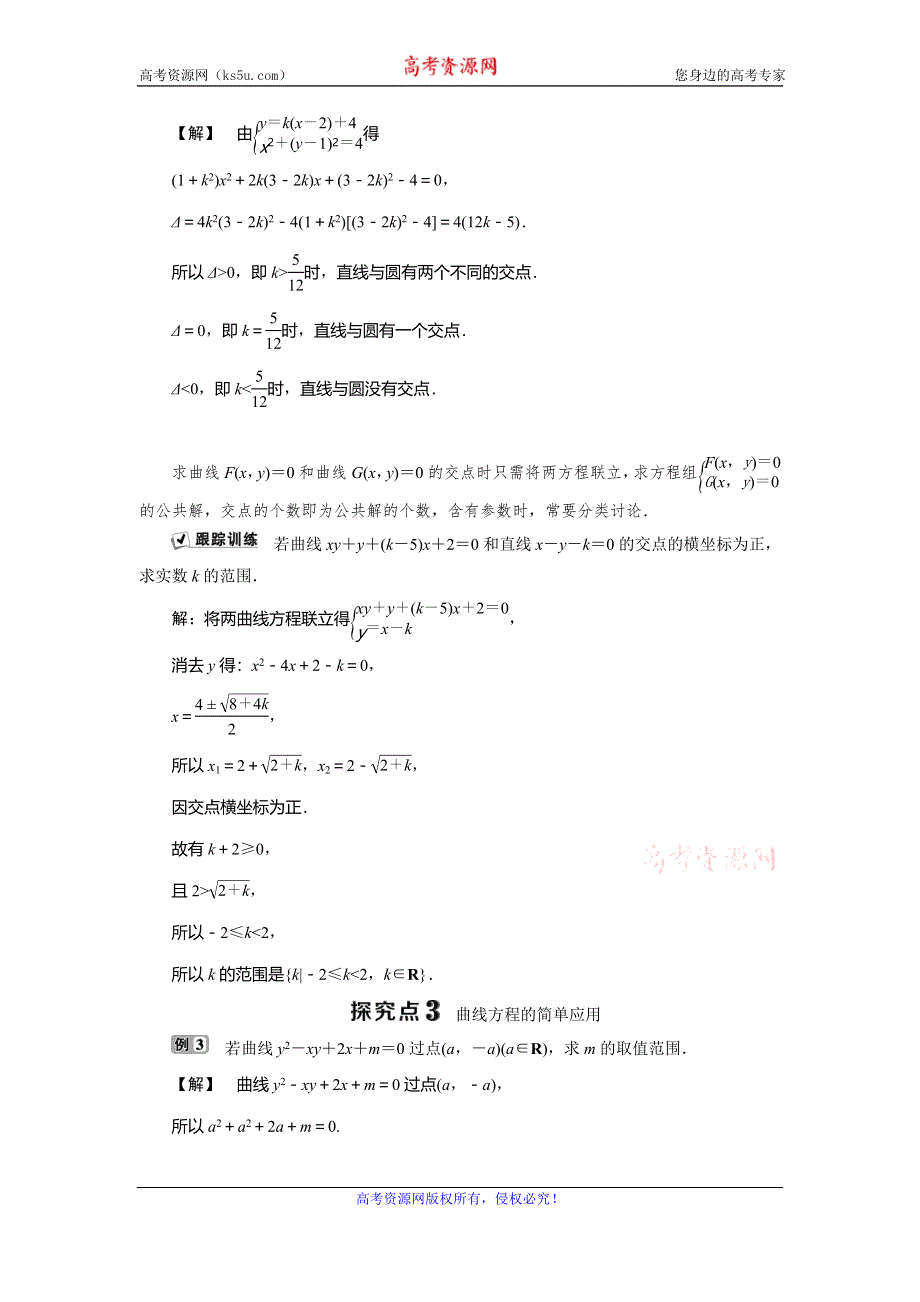 高考资源网（ks5u.com） 高考资源网 您身边的高考专家
【解】 由{y＝k(x－2)＋4
x²＋(y－1)²＝4得
(1＋k²)x²＋2k(3－2k)x＋(3－2k)²－4＝0，
Δ＝4k²(3－2k)²－4(1＋k²)[(3－2k)²－4]＝4(12k－5)．
所以 Δ>0，即 k>5/12时，直线与圆有两个不同的交点．
Δ＝0，即 k＝5/12时，直线与圆有一个交点．
Δ<0，即 k<5/12时，直线与圆没有交点．
求曲线 F(x，y)＝0 和曲线 G(x，y)＝0 的交点时只需将两方程联立，求方程组{F(x，y)＝0
G(x，y)＝0
的公共解，交点的个数即为公共解的个数，含有参数时，常要分类讨论．
跟踪训练 若曲线 xy＋y＋(k－5)x＋2＝0 和直线 x－y－k＝0 的交点的横坐标为正，
求实数 k 的范围．
解：将两曲线方程联立得{xy＋y＋(k－5)x＋2＝0
y＝x－k，
消去 y 得：x²－4x＋2－k＝0，
x＝(4±√(8＋4k))/2，
所以 x₁＝2＋√(2＋k)，x₂＝2－√(2＋k)，
因交点横坐标为正．
故有 k＋2≥0，
且 2>√(2＋k)，
所以－2≤k<2，
所以 k 的范围是{k|－2≤k<2，k∈R}．
高考资源网
探究点 3 曲线方程的简单应用
例 3 若曲线 y²－xy＋2x＋m＝0 过点(a，－a)(a∈R)，求 m 的取值范围．
【解】 曲线 y²－xy＋2x＋m＝0 过点(a，－a)，
所以 a²＋a²＋2a＋m＝0.
高考资源网版权所有，侵权必究！